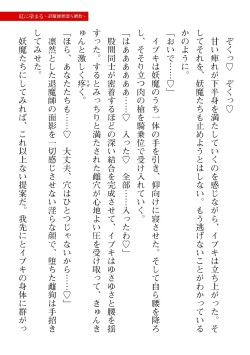 紅に染まる
ぞくっ♡　ぞくっ♡
甘い痺れが下半身を満たしていくのを感じながら、イブキは立ち上がった。そ
してそれを、妖魔たちも止めようとはしない。もう逃げないことがわかっている
かのように。
「おいで……♡」
イブキは妖魔のうち一体の手を引き、仰向けに寝させた。そして自ら腰を降ろ
し、そそり立つ肉の槍を騎乗位で受け入れていく。
「はぁぁぁぁぁぁ……♡　入った……♡　全部……入ったわ♡」
股間同士が密着するほどの深い結合を完成させて、イブキはゆさゆさと腰を揺
すった。するとみっちりと満たされた雌穴が心地よい圧を受け取って、きゅんき
ゅんと激しく疼く。
「ほら、あなたたちも……♡　大丈夫、穴はひとつじゃないから……♡」
凛然とした退魔師の面影を一切感じさせない淫らな顔で、堕ちた雌狗は手招き
してみせた。
妖魔たちにしてみれば、これ以上ない提案だ。我先にとイブキの身体に群がっ